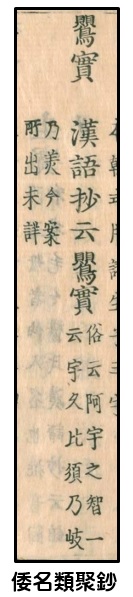 鸎實
漢語抄云鸎實
俗云阿宇之智一
云宇久比須乃岐
乃美今案
所出未詳
倭名類聚鈔